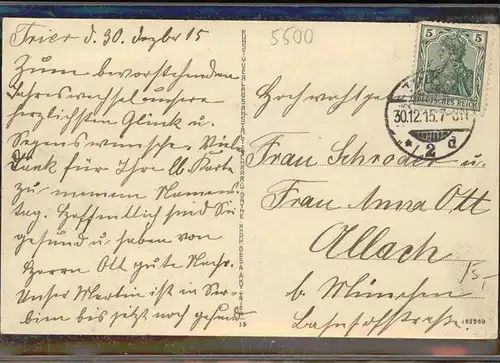 Trier d. 30. Dezbr 15
Zum bevorstehenden
Jahreswechsel unsere
herzlichsten Glück u.
Segenswünsche. Viele
Dank für Ihre lb. Karte
zu meinem Namens
tag. Hoffentlich sind Sie
gesund u. haben von
Herrn Ott gute Nachr.
Unser Martin ist in Ser-
bien bis jetzt noch gesund
5500
5 5
DEUTSCHES REICH
30.12.15. 7-8 N
* 2 d
Hochwohlgeb
Frau Schroder u.
Frau Anna Ott
Allach
b. München
Bahnhofstraße.
15,-
162960
18